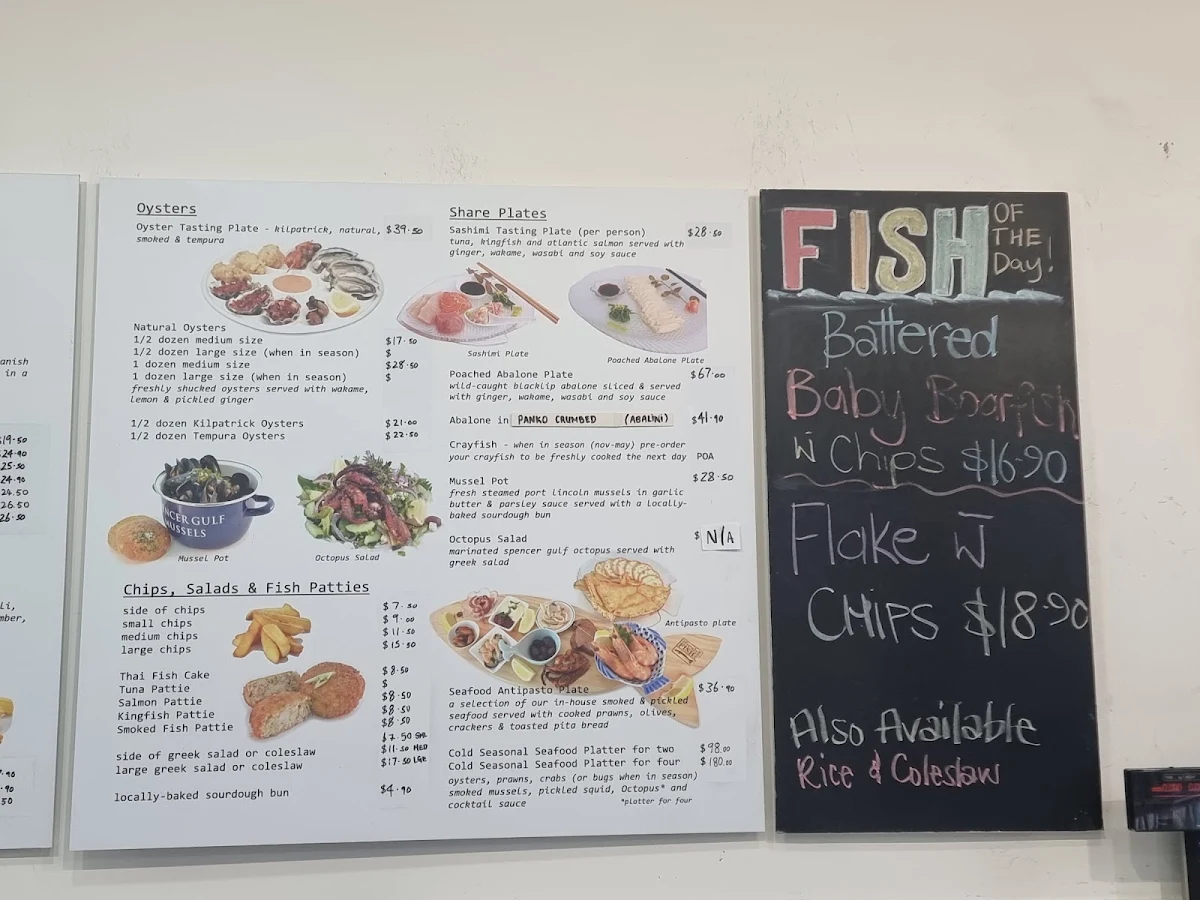 anish
in a
$19.50
24.90
25.50
24.90
24.50
26.50
26.50
li,
mber,
.90
.90
50
Oysters
Oyster Tasting Plate - kilpatrick, natural, $39.50
smoked & tempura
Natural Oysters
1/2 dozen medium size $17.50
1/2 dozen large size (when in season) $
1 dozen medium size $28.50
1 dozen large size (when in season) $
freshly shucked oysters served with wakame,
lemon & pickled ginger
1/2 dozen Kilpatrick Oysters $21.00
1/2 dozen Tempura Oysters $22.50
NCER GULF
MUSSELS
Mussel Pot
Octopus Salad
Chips, Salads & Fish Patties
side of chips $7.50
small chips $9.00
medium chips $11.50
large chips $15.50
Thai Fish Cake $8.50
Tuna Pattie $
Salmon Pattie $8.50
Kingfish Pattie $8.50
Smoked Fish Pattie $8.50
$7.50 SML
side of greek salad or coleslaw $11.50 MED
large greek salad or coleslaw $17.50 LGE
locally-baked sourdough bun $4.90
Share Plates
Sashimi Tasting Plate (per person) $28.50
tuna, kingfish and atlantic salmon served with
ginger, wakame, wasabi and soy sauce
Sashimi Plate
Poached Abalone Plate
Poached Abalone Plate $67.00
wild-caught blacklip abalone sliced & served
with ginger, wakame, wasabi and soy sauce
Abalone in PANKO CRUMBED (ABALINI) $41.90
Crayfish - when in season (nov-may) pre-order
your crayfish to be freshly cooked the next day POA
Mussel Pot $28.50
fresh steamed port lincoln mussels in garlic
butter & parsley sauce served with a locally-
baked sourdough bun
Octopus Salad $ N/A
marinated spencer gulf octopus served with
greek salad
Antipasto plate
Seafood Antipasto Plate $36.90
a selection of our in-house smoked & pickled
seafood served with cooked prawns, olives,
crackers & toasted pita bread
Cold Seasonal Seafood Platter for two $98.00
Cold Seasonal Seafood Platter for four $180.00
oysters, prawns, crabs (or bugs when in season)
smoked mussels, pickled squid, Octopus* and
cocktail sauce *platter for four
FISH OF THE Day!
Battered
Baby Boarfish
w̄ Chips $16.90
Flake w̄
CHIPS $18.90
Also Available
Rice & Coleslaw